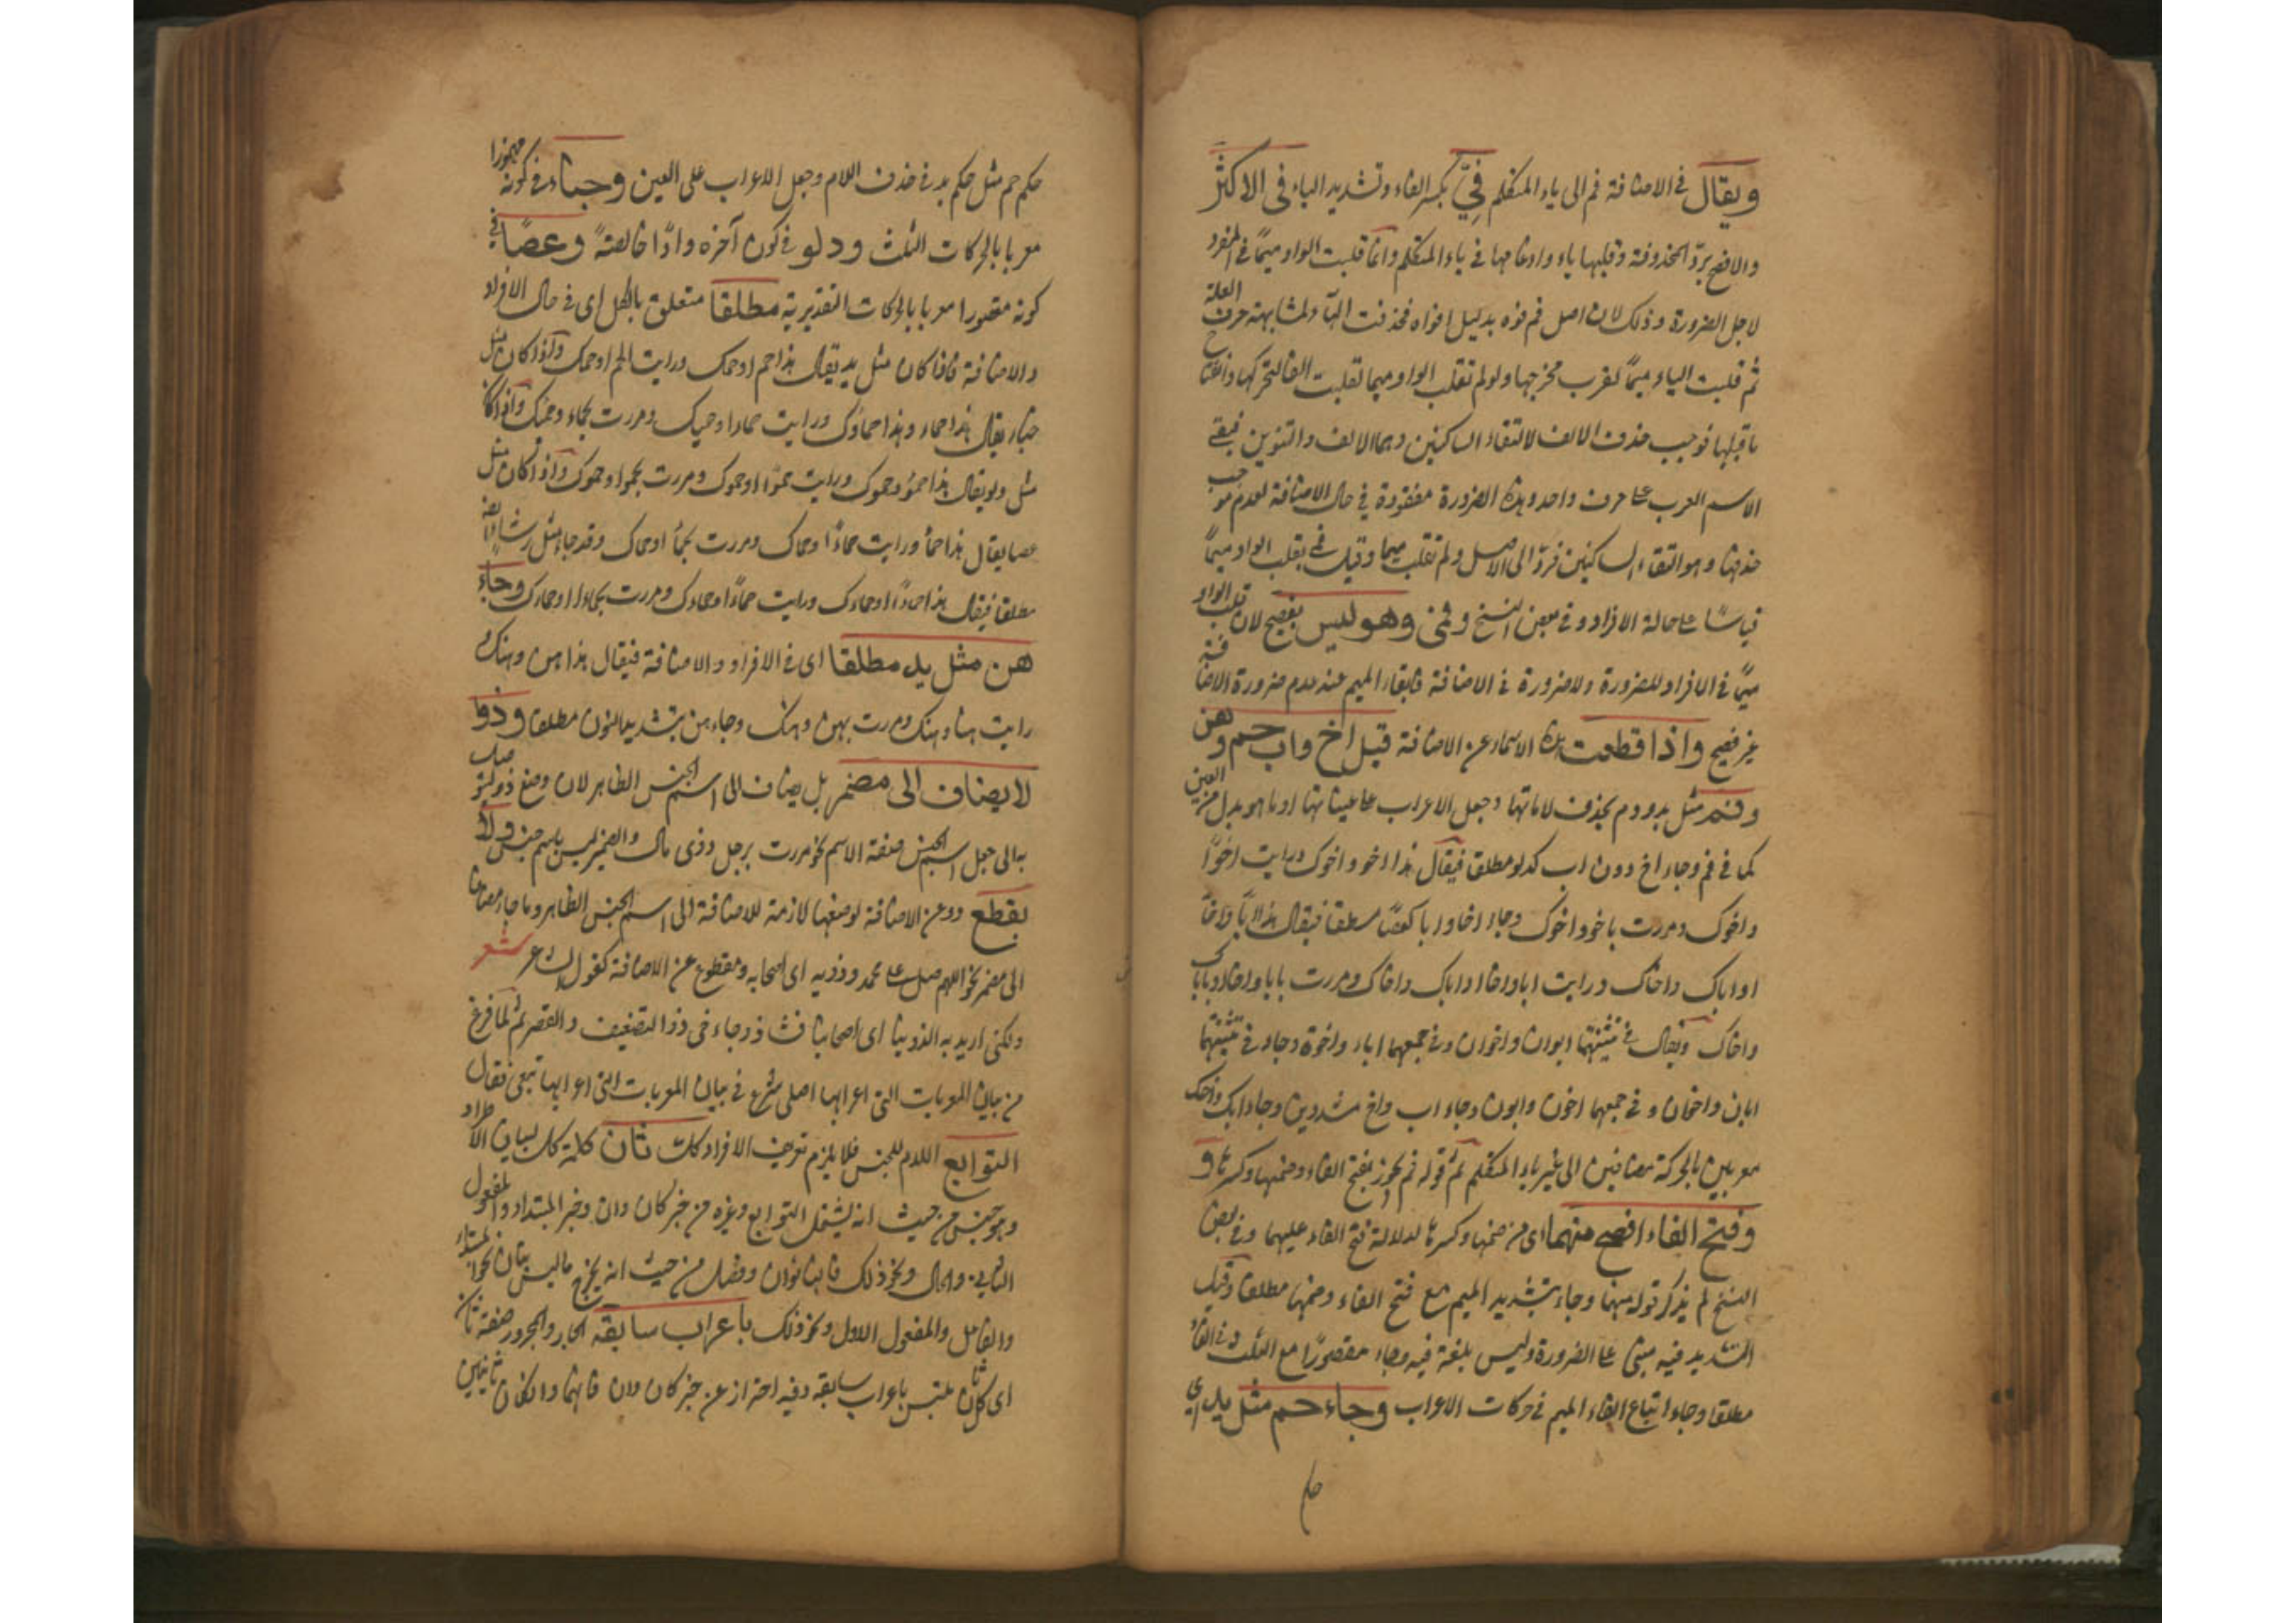 ويقال في الاضافة فم الى ياء المتكلم فيّ بكسر الفاء وتشديد الياء في الاكثر
والافصح بردّ المحذوفة وقلبها ياء وادغامها في ياء المتكلم وانما قلبت الواو ميمًا في المفرد
لاجل الضرورة وذلك لان اصل فم فوه بدليل افواه فحذفت الهاء لمشابهته حرف العلة
ثم قلبت الياء ميمًا لقرب مخرجها ولو لم تقلب الواو ميما لقلبت الفا لتحركها وانفتاح
ما قبلها فوجب حذف الالف لالتقاء الساكنين وهما الالف والتنوين فيبقى
الاسم المعرب على حرف واحد وهذه الضرورة مفقودة في حال الاضافة لعدم موجب
حذفها وهو التقاء الساكنين فردّ الى الاصل ولم تقلب ميما وقيل فمي بقلب الواو ميمًا
قياسًا على حالة الافراد وفي بعض النسخ وفمي وهو ليس بفصيح لان قلب الواو
ميمًا في الافراد للضرورة ولا ضرورة في الاضافة فابقاء الميم عند عدم ضرورة الاضافة
غير فصيح واذا قطعت هذه الاسماء عن الاضافة قيل اخ واب حم وهن
وفم مثل يد ودم بحذف لاماتها وجعل الاعراب على عيناتها او ما هو بدل من العين
كما في فم وجاء اخ دون اب كدلو مطلق فيقال هذا اخو واخوك ورايت اخوًا
واخوك ومررت باخو واخوك وجاء اخا وابا كعصًا مطلقا فيقال هذا ابًا واخًا
او اباك واخاك ورايت ابا واخا واباك واخاك ومررت بابا واخا وباباك
واخاك ويقال في تثنيتهما ابوان واخوان وفي جمعهما اباء واخوة وجاء في تثنيتهما
ابان واخان وفي جمعهما اخون وابون وجاء اب واخ مشددين وجاء ابك واخك
معربين بالحركة مضافين الى غير ياء المتكلم ثم قوله فم يجوز بفتح الفاء وضمها وكسرها و
وفتح الفاء افصح منهما اى من ضمها وكسرها لدلالة فتح الفاء عليهما وفي بعض
النسخ لم يذكر قوله منهما وجاء بتشديد الميم مع فتح الفاء وضمها مطلقا وقيل
التشديد فيه مبنى على الضرورة وليس بلغة فيه وجاء مقصورًا مع الثلث في الفاء
مطلقا وجاء اتباع الفاء الميم في حركات الاعراب وجاء حم مثل يد اي
حكم
حكم حم مثل حكم يد في حذف اللام وجعل الاعراب على العين وخباء في كونه مهموزا
معربا بالحركات الثلث ودلو في كون آخره واوًا خالصةً وعصًا في
كونه مقصورا معربا بالحركات التقديرية مطلقا متعلق بالكل اى في حال الافراد
والاضافة فاذا كان مثل يد يقال هذا حم او حمك ورايت الحم او حمك وآذا كان مثل
خباء يقال هذا حماء وهذا حماؤك ورايت حماءا وحميك ومررت بحماء وحمئك وآذا كان
مثل دلو يقال هذا حموٌ وحموك ورايت حموًا او حموك ومررت بحمو او حموك وآذا كان مثل
عصا يقال هذا حمًا ورايت حمًا او حماك ومررت بحمًا او حماك وقد جاء مثل رشاء ايضا
مطلقا فيقال هذا حماءًا او حماءك ورايت حماءًا او حماءك ومررت بحماء او حماءك وجاء
هن مثل يد مطلقا اى في الافراد والاضافة فيقال هذا هن وهنك و
رايت هنا وهنك ومررت بهن وهنك وجاء هن بتشديد النون مطلقا وذو
لا يضاف الى مضمر بل يضاف الى اسم الجنس الظاهر لان وضع ذو ليتوصل
به الى جعل اسم الجنس صفة الاسم نحو مررت برجل وذى مال والضمير ليس باسم جنس ولا
يقطع ذو عن الاضافة لوضعها لازمة للاضافة الى اسم الجنس الظاهر وما جاء مضافا
الى مضمر نحو اللهم صل على محمد وذويه اى اصحابه ومقطوع عن الاضافة كقول الشاعر شعر
ولكنى اريد به الذوينا اى اصحابنا فشاذ وجاء في ذو التضعيف والقصر ثم لما فرغ
من بيان المعربات التى اعرابها اصلى شرع في بيان المعربات التى اعرابها تبعى فقال
التوابع اللام للجنس فلا يلزم تعريف الافراد كلت ثان كلمة كل لبيان الاطراد
وهو جنس من حيث انه يشتمل التوابع وغيره من خبر كان وان وخبر المبتداء والمفعول
الثاني والحال ونحو ذلك فانها ثوان وفصل من حيث انه يخرج ما ليس بثان نحو المبتداء
والفاعل والمفعول الاول ونحو ذلك باعراب سابقه الجار والمجرور صفة ثان
اى كل ثان ملتبس باعراب سابقه وفيه احتراز عن خبر كان وان فانهما وان كان ثانيين